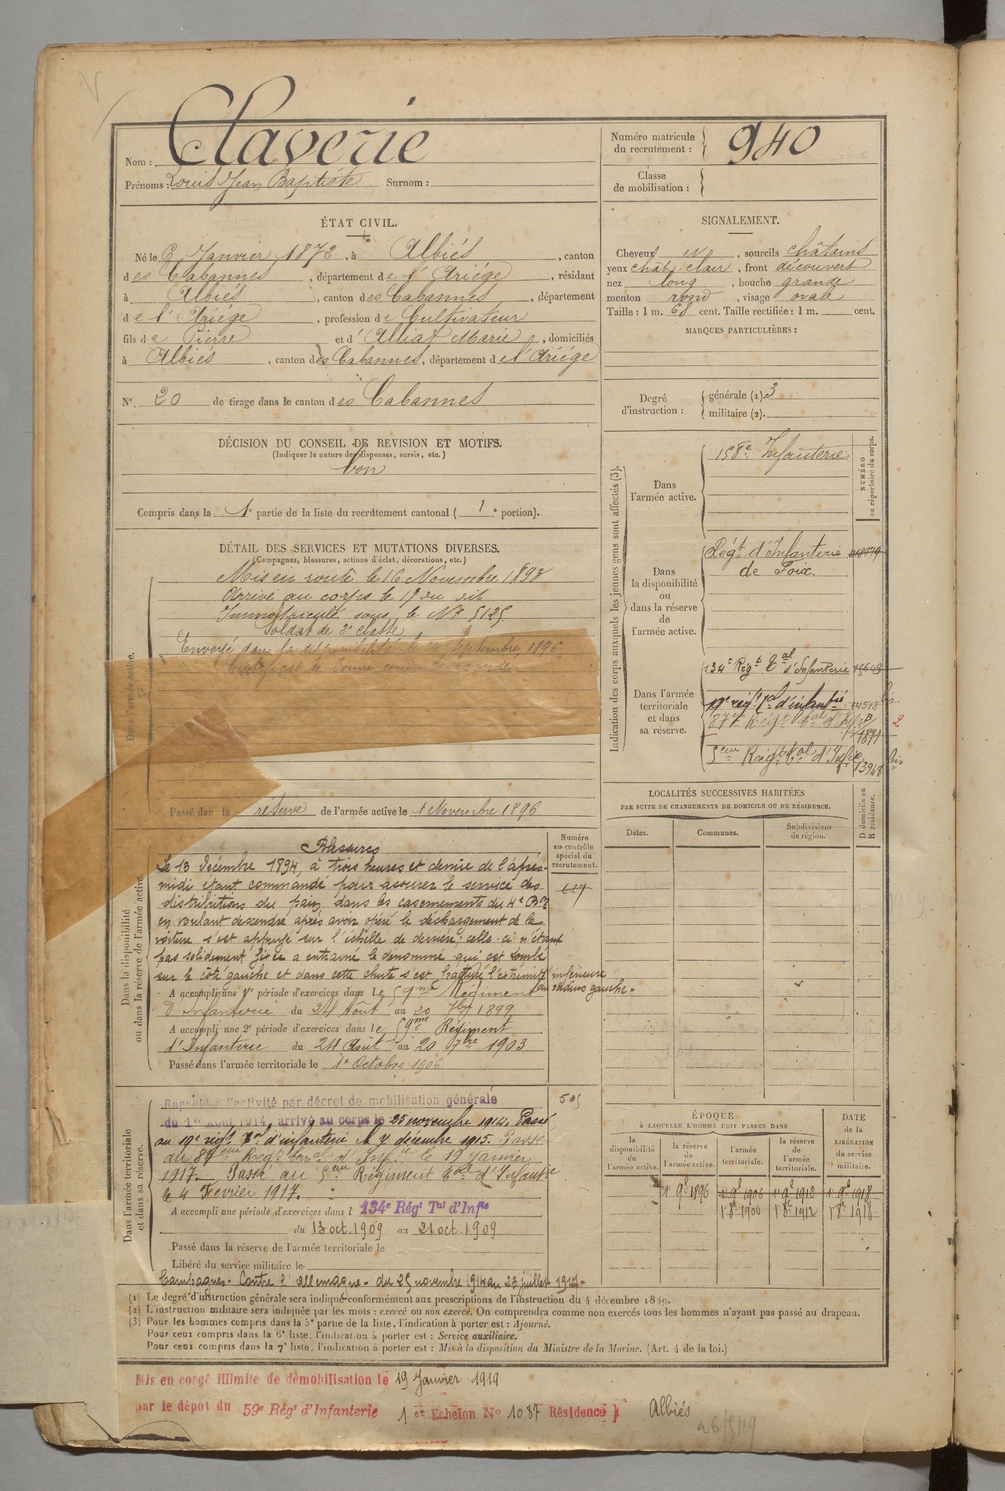 Nom : Claverie
Prénoms : Louis Jean Baptiste Surnom :
Numéro matricule du recrutement : 940
Classe de mobilisation :
ÉTAT CIVIL.
Né le 6 Janvier 1872, à Albiés, canton
des Cabannes, département de l'Ariége, résidant
à Albiés, canton des Cabannes, département
de l'Ariége, profession de Cultivateur
fils de Pierre et d'Alliat Marie, domiciliés
à Albiés, canton des Cabannes, département de l'Ariége
N° 20 de tirage dans le canton des Cabannes
SIGNALEMENT.
Cheveux , sourcils châtains
yeux chât. clair, front découvert
nez long, bouche grande
menton rond, visage ovale
Taille : 1 m. 68 cent. Taille rectifiée : 1 m. cent.
MARQUES PARTICULIÈRES :
Degré d'instruction : générale (1). 3
militaire (2).
DÉCISION DU CONSEIL DE REVISION ET MOTIFS.
(Indiquer la nature des dispenses, sursis, etc.)
bon
Compris dans la 1e partie de la liste du recrutement cantonal ( 1 e portion).
DÉTAIL DES SERVICES ET MUTATIONS DIVERSES.
(Campagnes, blessures, actions d'éclat, décorations, etc.)
Dans l'armée active.
Mis en route le 16 Novembre 1893
Arrivé au corps le 17 du dit
Immatriculé sous le N° 5125
Soldat de 2e classe
Envoyé dans la disponibilité le Septembre 1896
Certificat de bonne conduite
Passé dans la réserve de l'armée active le 1 Novembre 1896
Indication des corps auxquels les jeunes gens sont affectés (3).
NUMÉRO au répertoire du corps.
Dans l'armée active.
158e Infanterie
Dans la disponibilité ou dans la réserve de l'armée active.
Régt d'Infanterie de Foix.
Dans l'armée territoriale et dans sa réserve.
134e Régt Tal d'Infanterie 15649
19e régt Tal d'infantie 14518 bis
87e Régt Tal d'Inf 1871 2
5eme Régt Tal d'Infie 13948 bis
LOCALITÉS SUCCESSIVES HABITÉES
PAR SUITE DE CHANGEMENTS DE DOMICILE OU DE RÉSIDENCE.
Dates. Communes. Subdivisions de région. D domicile ou R résidence.
Dans la disponibilité ou dans la réserve de l'armée active.
Numéro au contrôle spécial du recrutement.
Blessures
Le 13 Décembre 1894, à trois heures et demie de l'après-
midi étant commandé pour assurer le service des
distributions du pain dans les casernements du 4e Bon
en voulant descendre après avoir opéré le déchargement de la
voiture s'est appuyé sur l'échelle de derrière; celle-ci n'étant
pas solidement fixée a entrainé le denommé qui est tombé
sur le côté gauche et dans cette chute s'est fracturé l'extrémité inférieure
du radius gauche.
A accompli une 1re période d'exercices dans le 59me Régiment
d'Infanterie du 24 Août au 20 7bre 1899
A accompli une 2e période d'exercices dans le 59me Régiment
d'Infanterie du 24 Août au 20 7bre 1903
Passé dans l'armée territoriale le 1er Octobre 1906
Dans l'armée territoriale et dans sa réserve.
505
Rappelé à l'activité par décret de mobilisation générale
du 1er Août 1914, arrivé au corps le 25 novembre 1914. Passé
au 19e régt Tal d'infanterie le 7 décembre 1915. Passé
au 87eme Régt terral d'Infie le 19 janvier
1917. Passé au 5eme Régiment Tal d'Infantie
le 4 Fevrier 1917.
A accompli une période d'exercices dans l 134e Régt Tal d'Infie
du 13 oct. 1909 au 21 oct. 1909
Passé dans la réserve de l'armée territoriale le
Libéré du service militaire le
Campagnes. Contre l'allemagne. du 25 novembre 1914 au 23 juillet 1917.
ÉPOQUE
À LAQUELLE L'HOMME DOIT PASSER DANS
la disponibilité de l'armée active. la réserve de l'armée active. l'armée territoriale. la réserve de l'armée territoriale. DATE de la LIBÉRATION du service militaire.
1 9e 1896 1 9e 1906 1 9e 1912 1 9e 1918
1 8e 1906 1 8e 1912 1 8e 1918
(1) Le degré d'instruction générale sera indiqué conformément aux prescriptions de l'instruction du 4 décembre 1889.
(2) L'instruction militaire sera indiquée par les mots : exercé ou non exercé. On comprendra comme non exercés tous les hommes n'ayant pas passé au drapeau.
(3) Pour les hommes compris dans la 5e partie de la liste, l'indication à porter est : Ajourné.
Pour ceux compris dans la 6e liste, l'indication à porter est : Service auxiliaire.
Pour ceux compris dans la 7e liste, l'indication à porter est : Mis à la disposition du Ministre de la Marine. (Art. 4 de la loi.)
Mis en congé illimité de démobilisation le 19 Janvier 1919
par le dépôt du 59e Régt d'Infanterie 1er Echelon N° 1087 Résidence } Albiés
26/5/19